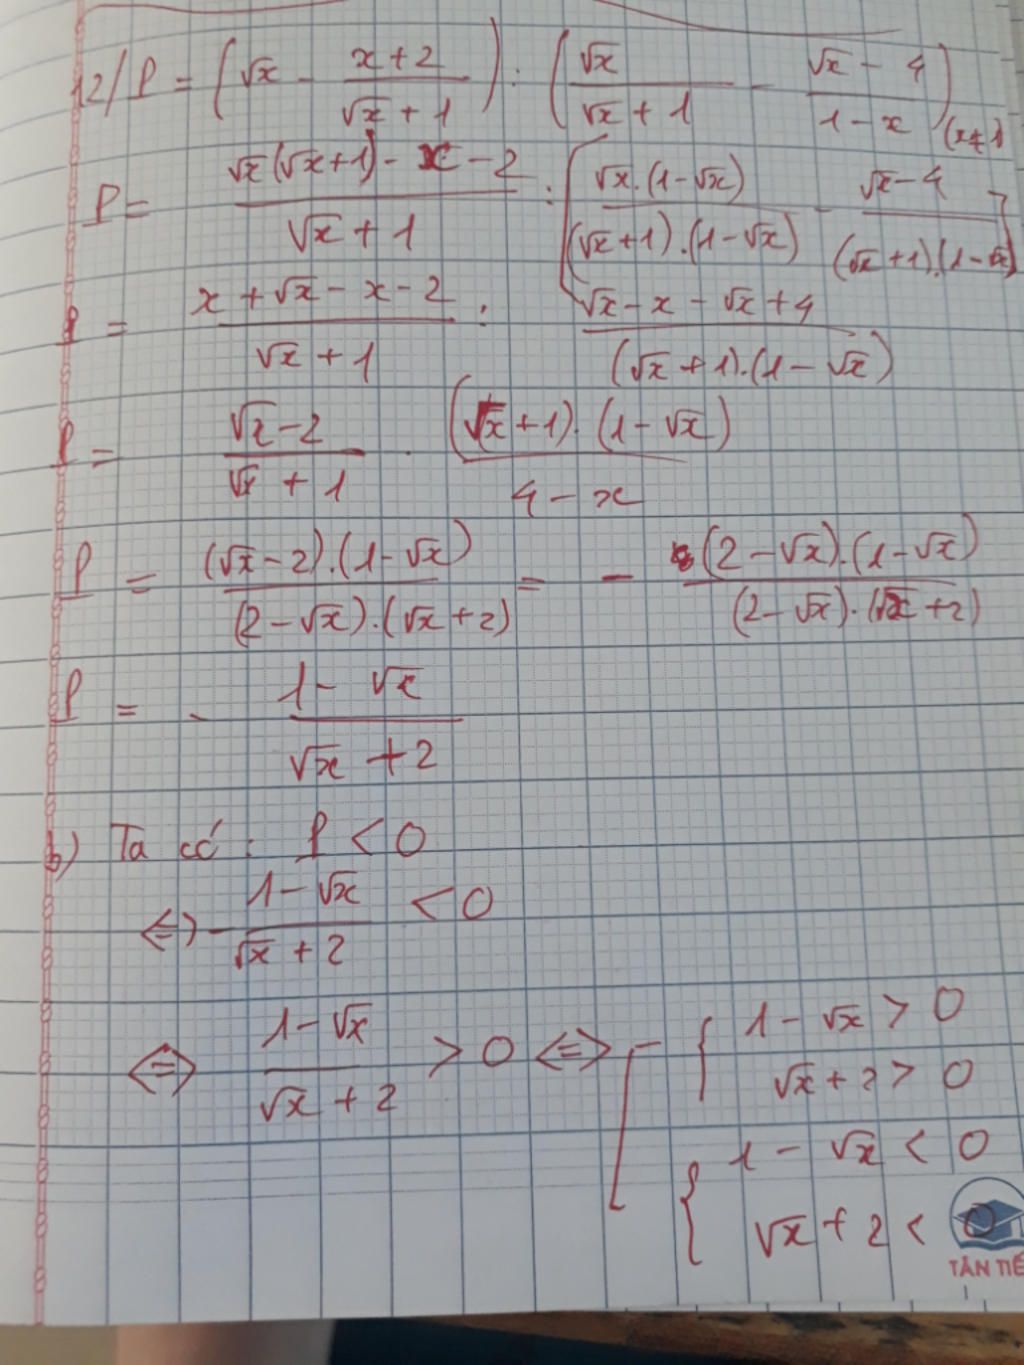 12/ P = (√x - (x+2)/(√x+1)) : (√x/(√x+1) - (√x-4)/(1-x)) (x≠1)
P = (√x(√x+1) - x - 2)/(√x+1) : [(√x.(1-√x))/((√x+1).(1-√x)) - (√x-4)/((√x+1).(1-√x))]
P = (x+√x-x-2)/(√x+1) : (√x-x-√x+4)/((√x+1).(1-√x))
P = (√x-2)/(√x+1) . ((√x+1).(1-√x))/(4-x)
P = ((√x-2).(1-√x))/((2-√x).(√x+2)) = - ((2-√x).(1-√x))/((2-√x).(√x+2))
P = - (1-√x)/(√x+2)
b) Ta có: P < 0
⇔ - (1-√x)/(√x+2) < 0
⇔ (1-√x)/(√x+2) > 0 ⇔ [ { 1-√x > 0
√x+2 > 0
{ 1-√x < 0
√x+2 < 0
TÂN TIẾ